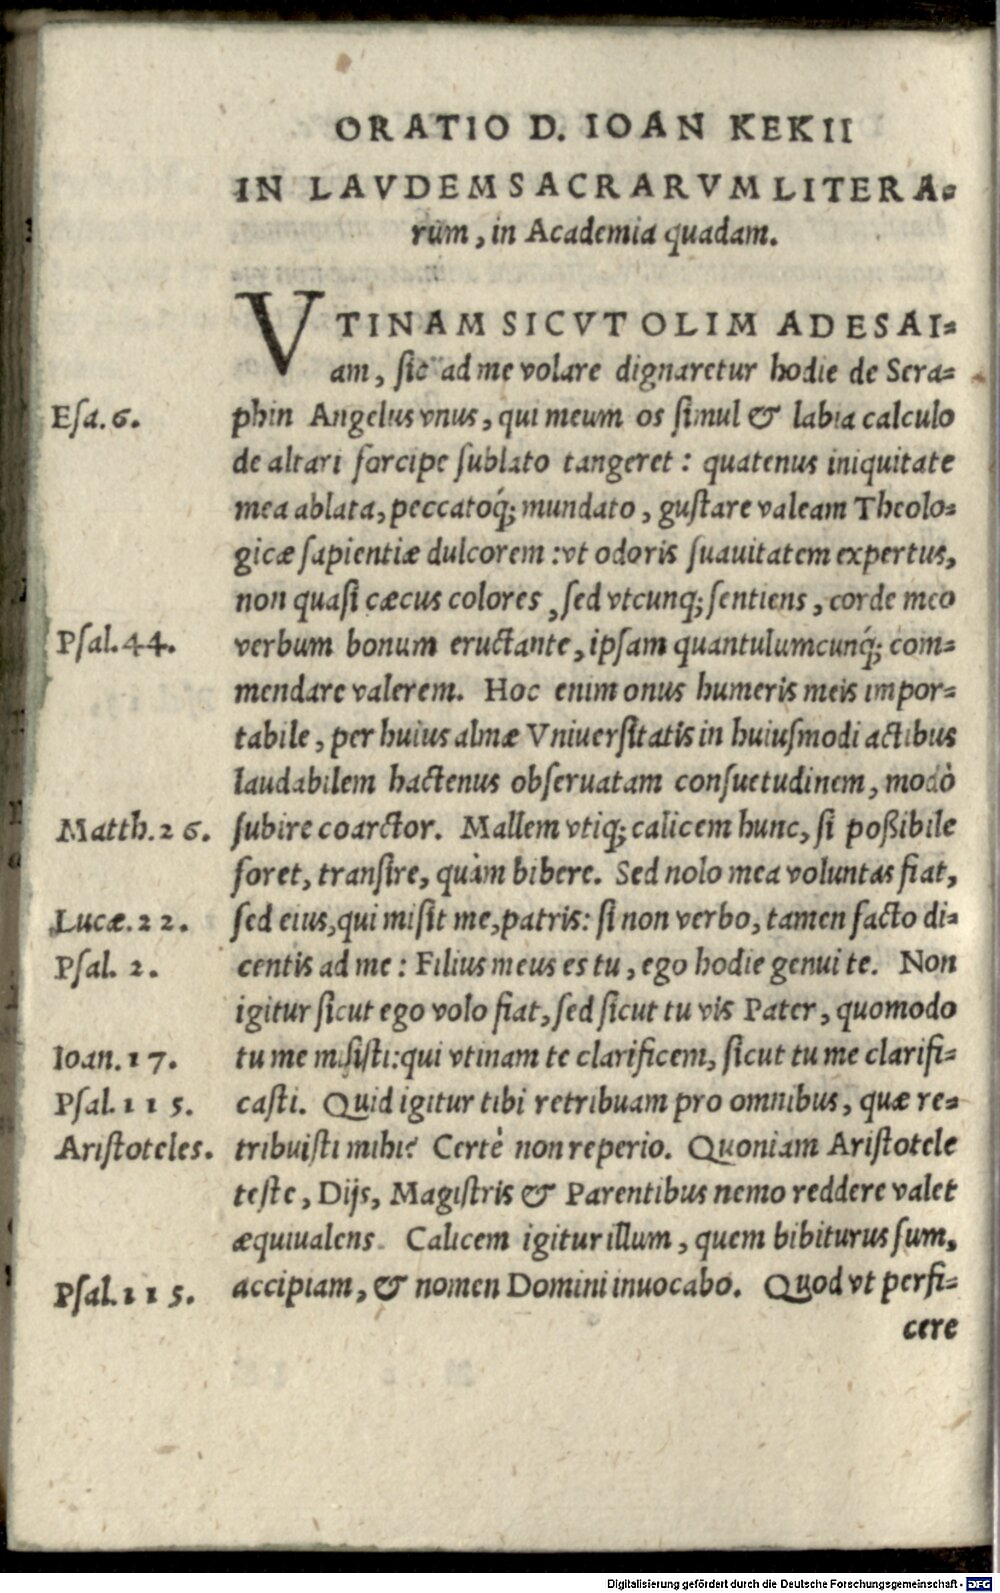 ORATIO D. IOAN KEKII
IN LAVDEM SACRARVM LITERA-
rum, in Academia quadam.
VTINAM SICVT OLIM AD ESAI-
am, sic ad me volare dignaretur hodie de Sera-
Esa. 6. phin Angelus vnus, qui meum os simul & labia calculo
de altari forcipe sublato tangeret: quatenus iniquitate
mea ablata, peccatoq́; mundato, gustare valeam Theolo-
gicæ sapientiæ dulcorem: vt odoris suauitatem expertus,
non quasi cæcus colores, sed vtcunq; sentiens, corde meo
Psal. 44. verbum bonum eructante, ipsam quantulumcunq́; com-
mendare valerem. Hoc enim onus humeris meis impor-
tabile, per huius almæ Vniuersitatis in huiusmodi actibus
laudabilem hactenus obseruatam consuetudinem, modò
Matth. 26. subire coarctor. Mallem vtiq; calicem hunc, si poßibile
foret, transire, quàm bibere. Sed nolo mea voluntas fiat,
Lucæ. 22. sed eius, qui misit me, patris: si non verbo, tamen facto di-
Psal. 2. centis ad me: Filius meus es tu, ego hodie genui te. Non
igitur sicut ego volo fiat, sed sicut tu vis Pater, quomodo
Ioan. 17. tu me misisti: qui vtinam te clarificem, sicut tu me clarifi-
Psal. 115. casti. Quid igitur tibi retribuam pro omnibus, quæ re-
Aristoteles. tribuisti mihi? Certè non reperio. Quoniam Aristotele
teste, Dijs, Magistris & Parentibus nemo reddere valet
æquiualens. Calicem igitur illum, quem bibiturus sum,
Psal. 115. accipiam, & nomen Domini inuocabo. Quod vt perfi-
cere
Digitalisierung gefördert durch die Deutsche Forschungsgemeinschaft - DFG